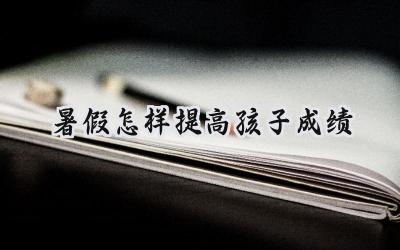 暑假怎样提高孩子成绩